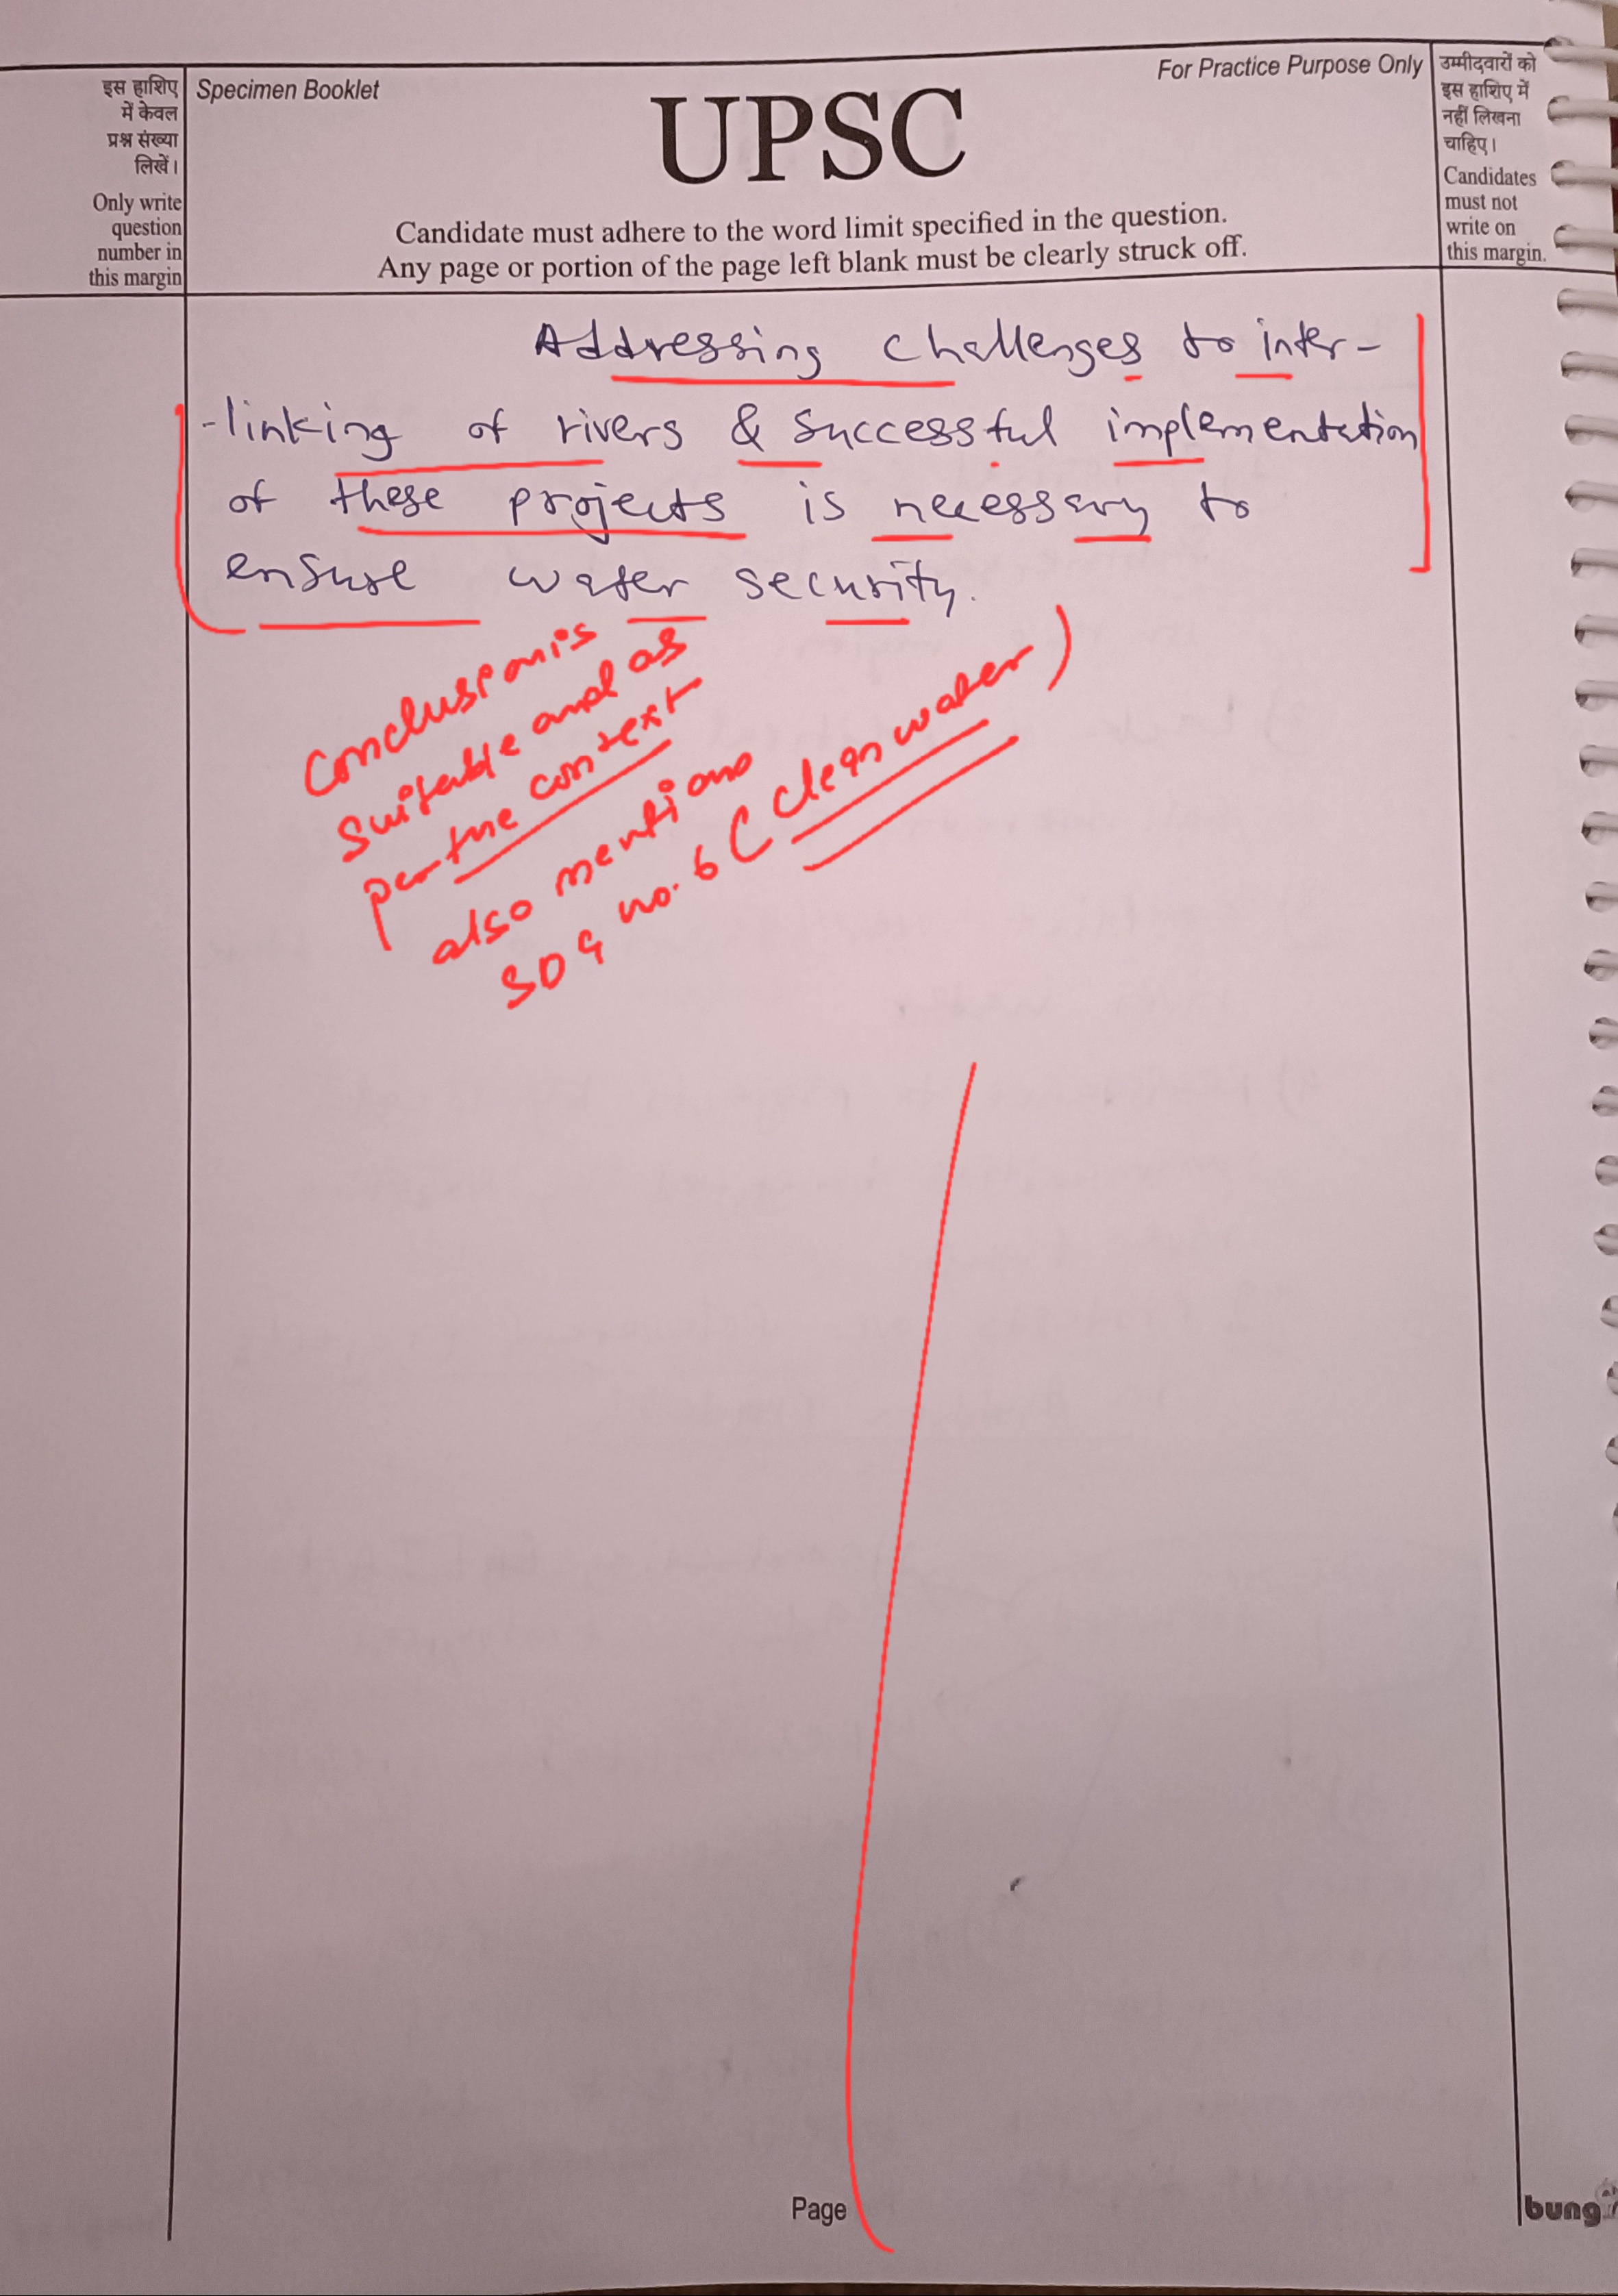 इस हाशिए
में केवल
प्रश्न संख्या
लिखें।
Only write
question
number in
this margin
Specimen Booklet
For Practice Purpose Only
UPSC
Candidate must adhere to the word limit specified in the question.
Any page or portion of the page left blank must be clearly struck off.
उम्मीदवारों को
इस हाशिए में
नहीं लिखना
चाहिए।
Candidates
must not
write on
this margin.
Addressing challenges to inter-
-linking of rivers & successful implementation
of these projects is necessary to
ensure water security.
Conclusion is
suitable and as
per the context
also mention
SDG no. 6 (clean water)
Page
bung